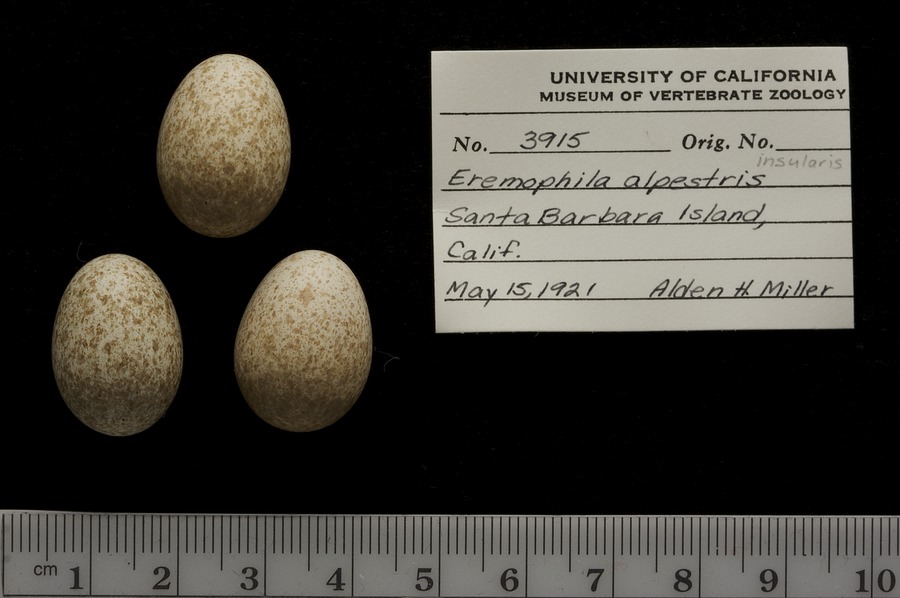 UNIVERSITY OF CALIFORNIA
MUSEUM OF VERTEBRATE ZOOLOGY
No. 3915 Orig. No.
insularis
Eremophila alpestris
Santa Barbara Island,
Calif.
May 15, 1921 Alden H. Miller
cm 1 2 3 4 5 6 7 8 9 10